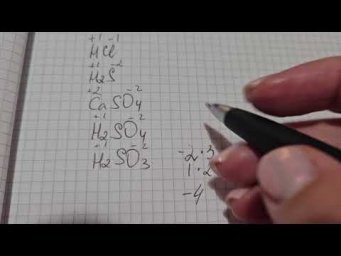 +1 -1
HCl
+1 -2
H₂S
+2 -2
CaSO₄
+1 -2
H₂SO₄
+1 -2
H₂SO₃
-2·3
1·2
-4